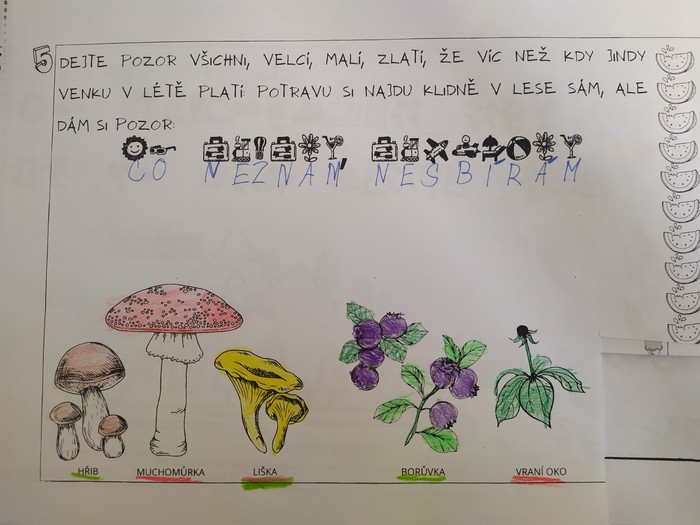 5 DEJTE POZOR VŠICHNI, VELCÍ, MALÍ, ZLATÍ, ŽE VÍC NEŽ KDY JINDY
VENKU V LÉTĚ PLATÍ: POTRAVU SI NAJDU KLIDNĚ V LESE SÁM, ALE
DÁM SI POZOR:
CO NEZNÁM, NESBÍRÁM
HŘIB MUCHOMŮRKA LIŠKA BORŮVKA VRANÍ OKO